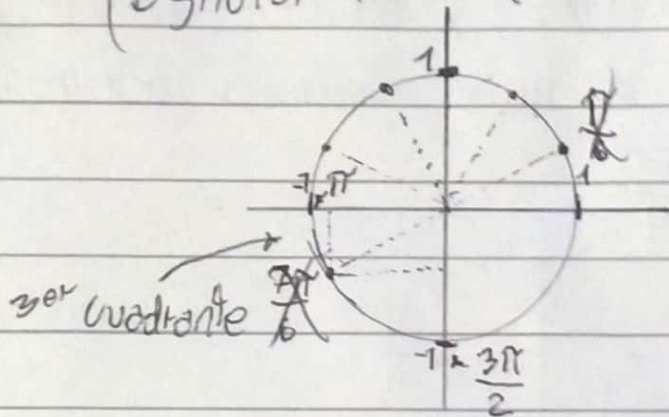 1
π/6
-1 π
1
3er cuadrante 7π/6
-1 3π/2